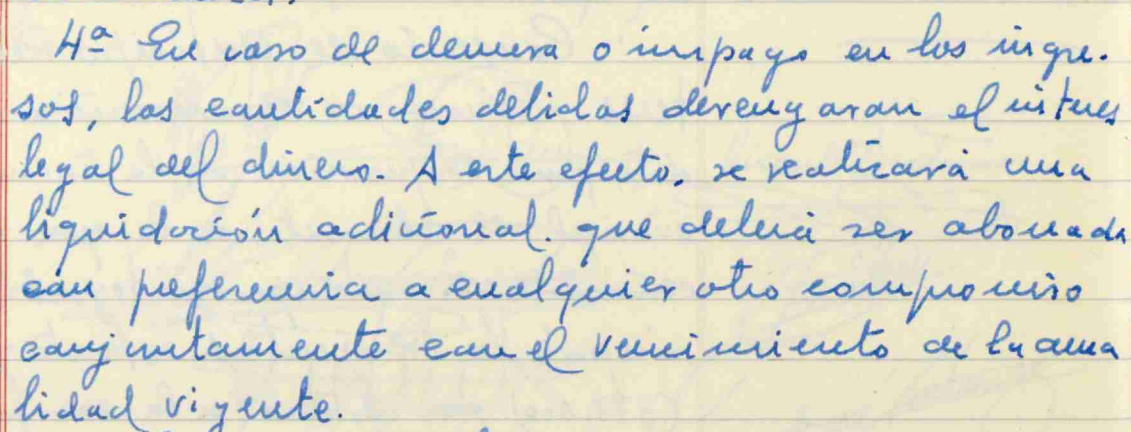 4ª En caso de demora o impago en los ingre-
sos, las cantidades debidas devengaran el interes
legal del dinero. A este efecto, se realizará una
liquidación adicional. que deberá ser abonada
con preferencia a cualquier otro compromiso
conjuntamente con el vencimiento de la anua
lidad vigente.